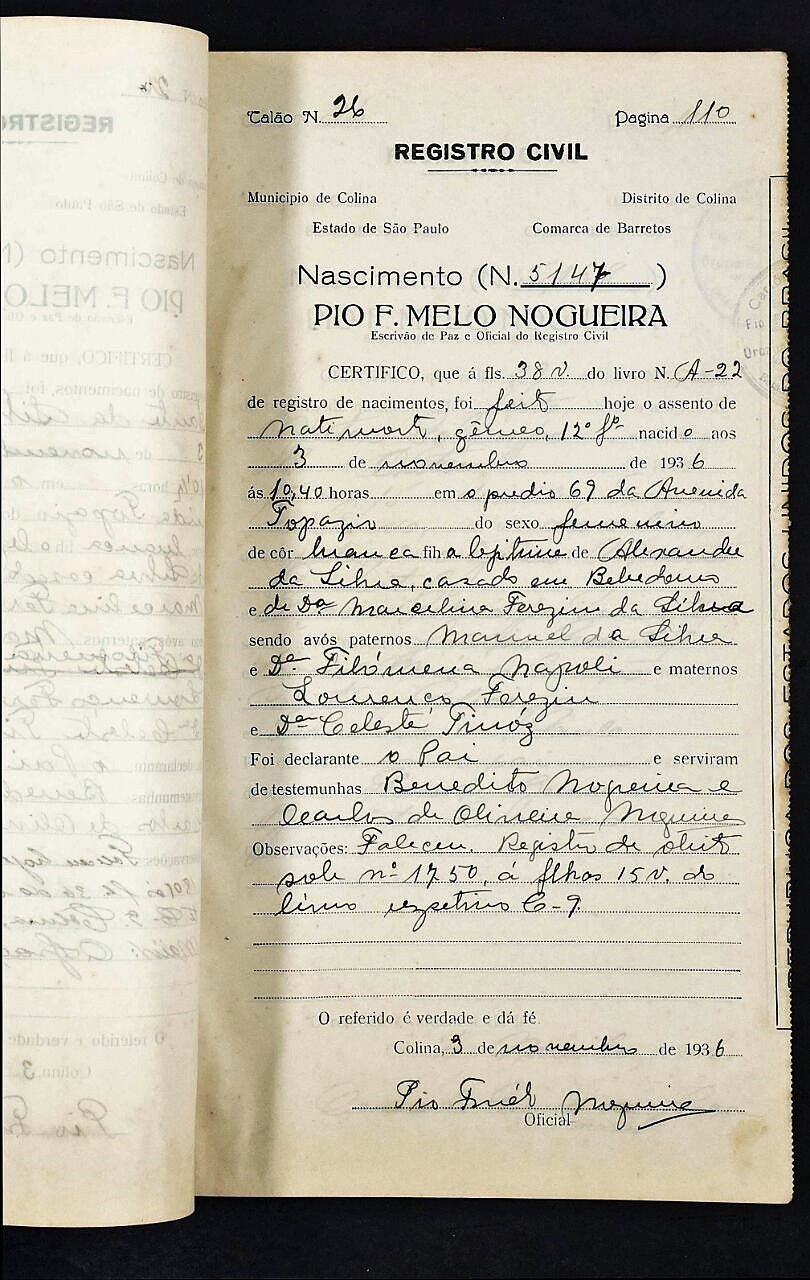 Talão N. 26 Pagina 110
REGISTRO CIVIL
Municipio de Colina Distrito de Colina
Estado de São Paulo Comarca de Barretos
Nascimento (N. 5147)
PIO F. MELO NOGUEIRA
Escrivão de Paz e Oficial do Registro Civil
CERTIFICO, que á fls. 38 v. do livro N. A-22
de registro de nacimentos, foi feito hoje o assento de
nati morto, gêmeo, 12º fº nacido aos
3 de novembro de 1936
ás 10,40 horas em o predio 69 da Avenida
Topazio do sexo femenino
de côr branca filha legitima de Alexandre
da Silva, casado em Bebedouro
e de Dª Marcelina Ferezin da Silva
sendo avós paternos Manuel da Silva
e Dª Filómena Napoli e maternos
Lourenço Ferezin
e Dª Celeste
Foi declarante o Pai e serviram
de testemunhas Benedito Nogueira e
Carlos de Oliveira Nogueira
Observações: Faleceu. Registro de obito
sob nº 1750, á flhas 15 v. do
livro C-9.
O referido é verdade e dá fé.
Colina, 3 de novembro de 1936
Pio Nogueira
Oficial